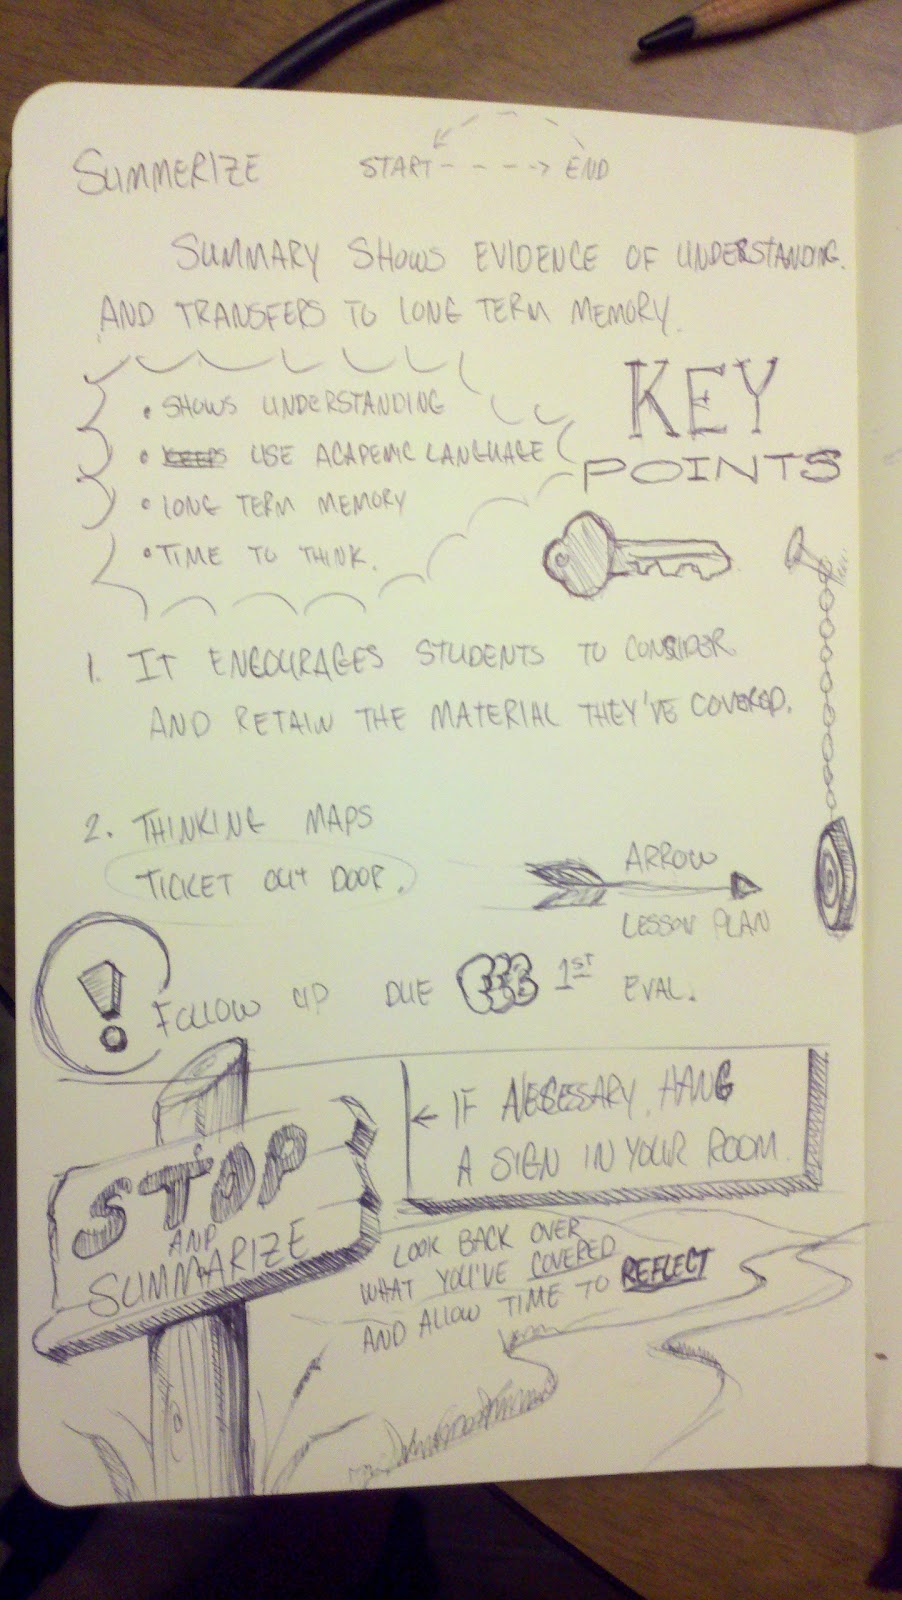 SUMMERIZE
START END
SUMMARY SHOWS EVIDENCE OF UNDERSTANDING.
AND TRANSFERS TO LONG TERM MEMORY.
KEY
POINTS
• SHOWS UNDERSTANDING
• USE ACADEMIC LANGUAGE
• LONG TERM MEMORY
• TIME TO THINK.
1. IT ENCOURAGES STUDENTS TO CONSIDER
AND RETAIN THE MATERIAL THEY'VE COVERED.
2. THINKING MAPS
TICKET OUT DOOR.
ARROW
LESSON PLAN
! FOLLOW UP DUE 1ST EVAL.
IF NECESSARY, HANG
A SIGN IN YOUR ROOM.
STOP
AND
SUMMARIZE
LOOK BACK OVER
WHAT YOU'VE COVERED
AND ALLOW TIME TO REFLECT